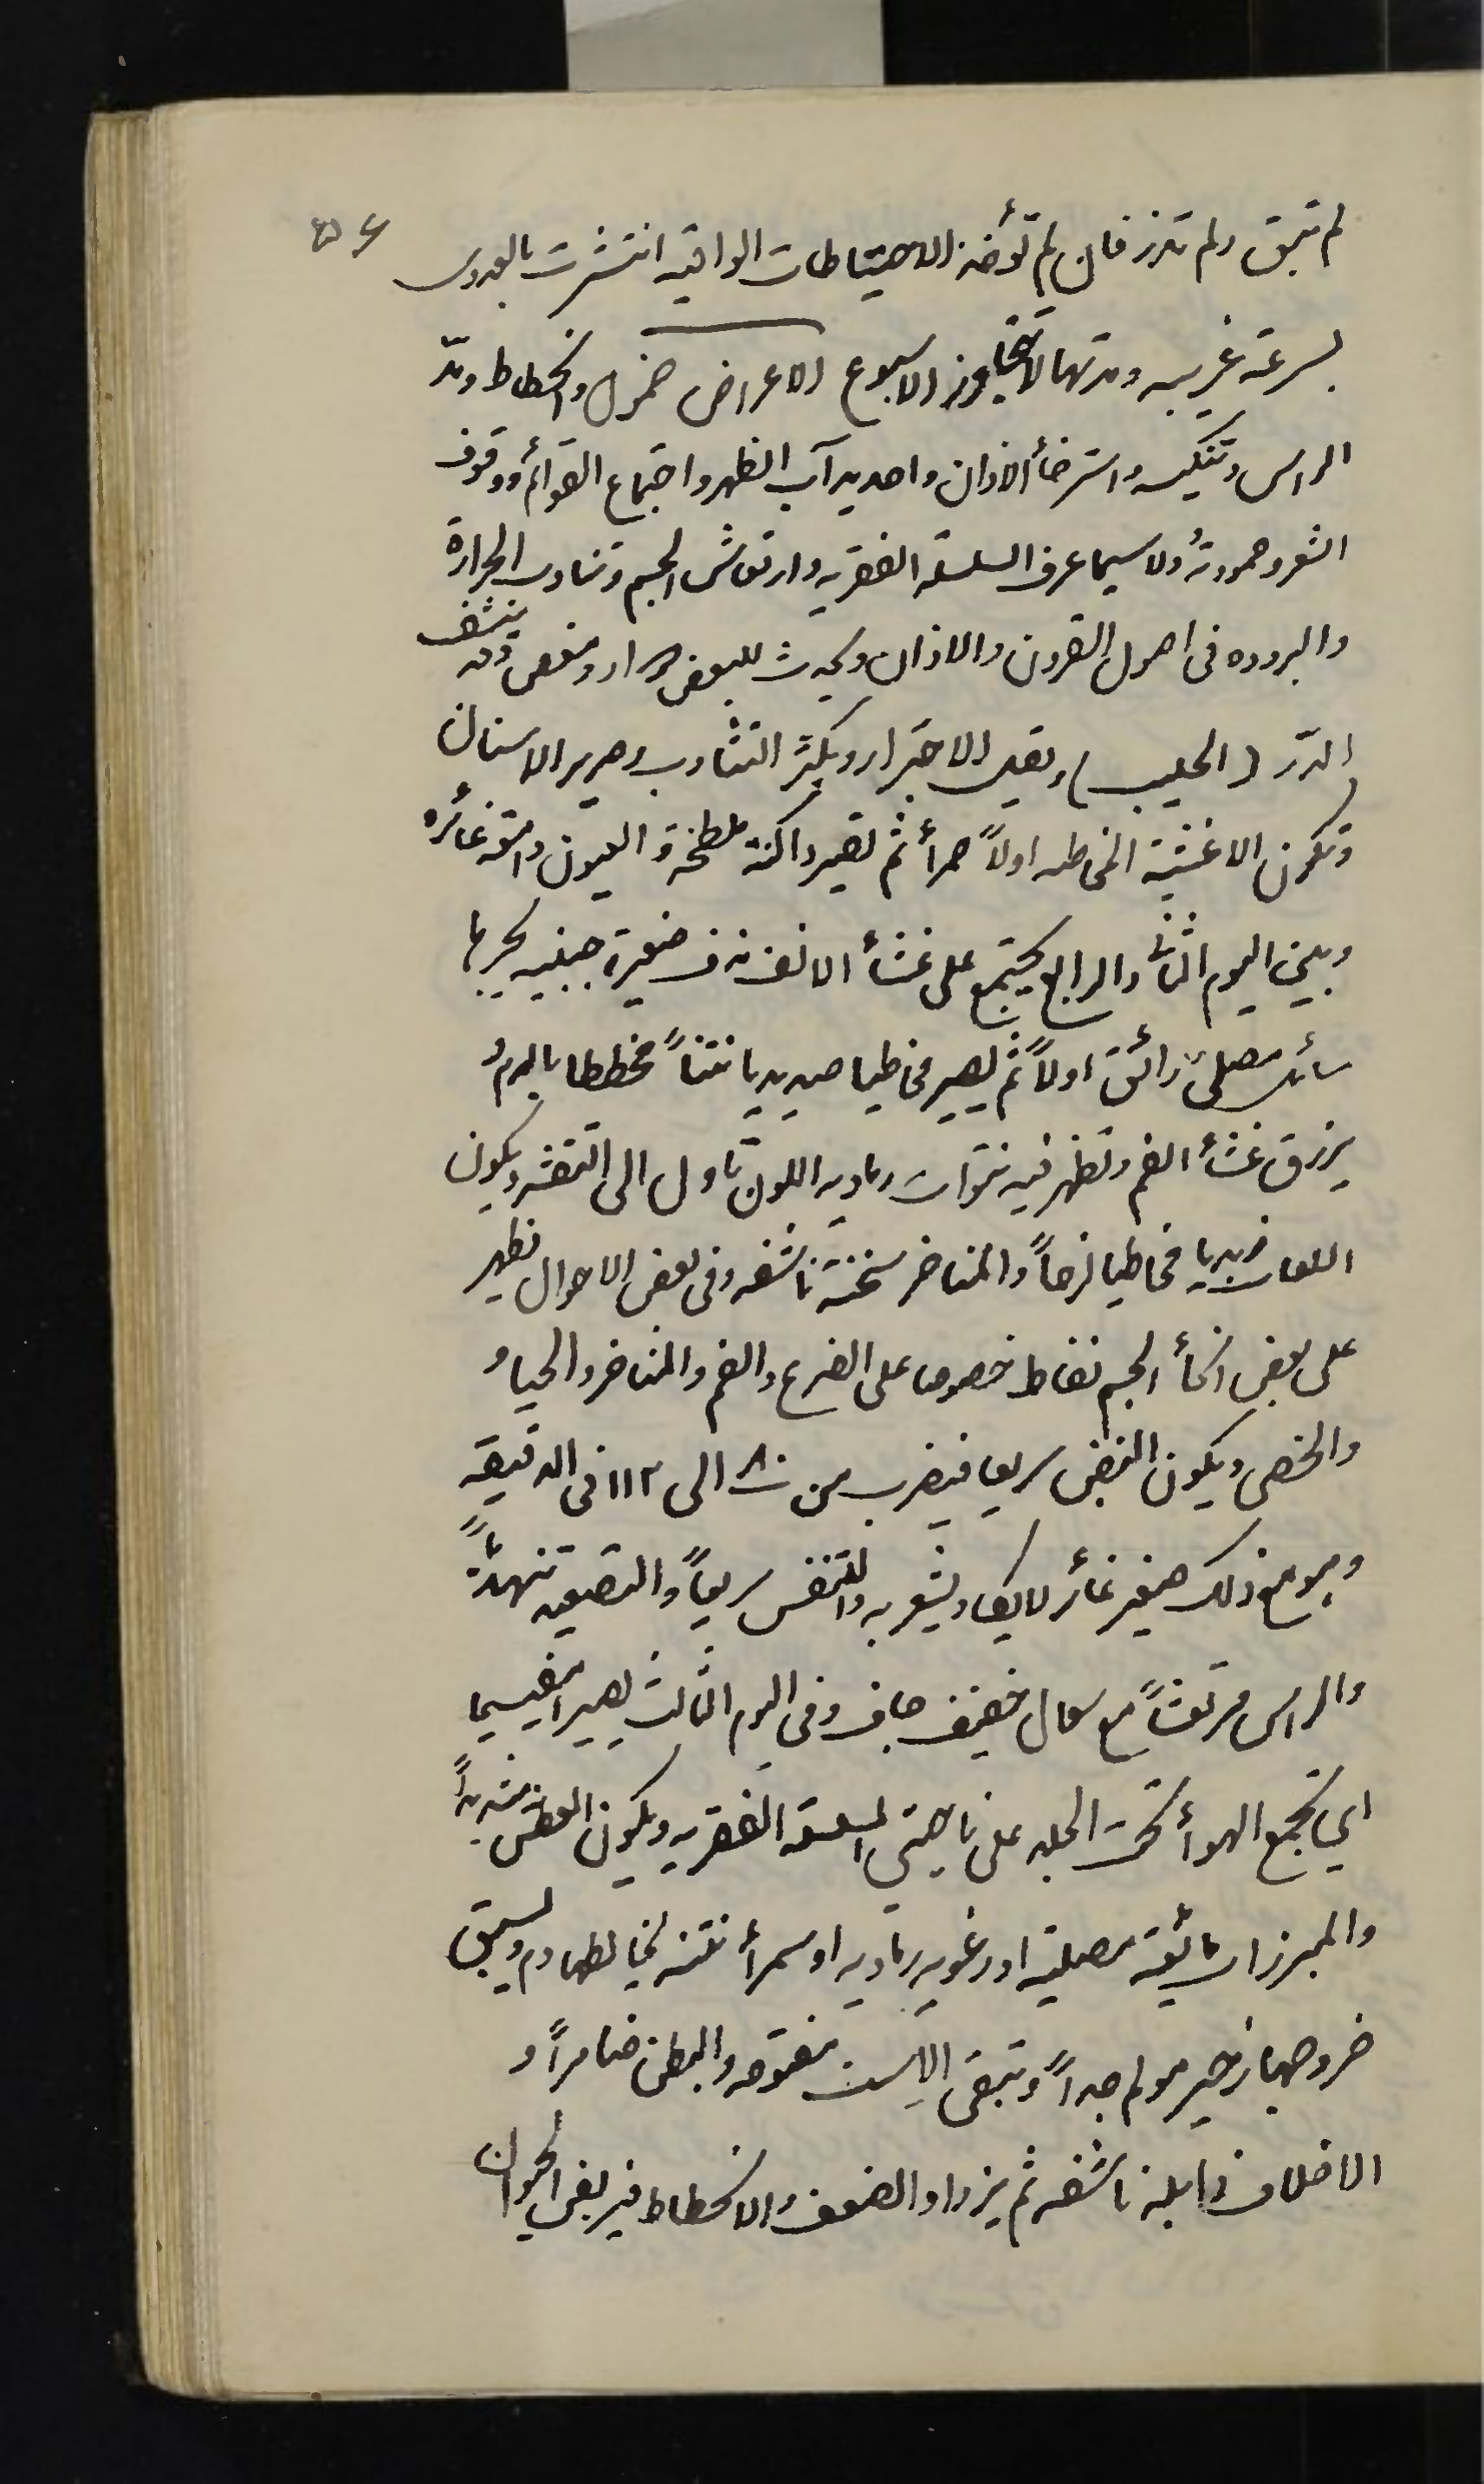 ٥٤
لم تبق ولم تذر فان لم تؤخذ الاحتياطات الواقيه انتشرت بالعدوى
بسرعة غريبه ومدتها لا تتجاوز الاسبوع الاعراض خمول وانحطاط ومدّ
الراس وتنكيسه واسترخأ الاذان واحديدآب الظهر واجتماع القوائم ووقوف
الشعر وجموده ولا سيما عرف السلسلة الفقريه وارتعاش الجسم وتناوب الحرارة
والبروده فى اصول القرون والاذان ويحدث للبعض دوار ومغص وقد ينشف
الدّر (الحليب) ويقل الاجترار ويكثر التثاوب وصرير الاسنان
وتكون الاغشية المخاطيه اولاً حمرأ ثم تصير داكنة ملطخة والعيون دامعة غائره
وبين اليوم الثانى والرابع يجتمع على غشأ الانف مواد صغيرة جبنيه يجرى بها
سائل مصلى رائق اولاً ثم يصير مخاطيا صديديا نتناً مخططا بالدم و
يزرق غشأ الفم وتظهر فيه نتوات رماديه اللون تاول الى التقشر ويكون
اللعاب زبديا مخاطيا لزجاً والمناخر سخنة ناشفه وفى بعض الاحوال تظهر
على بعض انحأ الجسم نفاط خصوصا على الضرع والفم والمناخر والحيا و
والخصى ويكون النبض سريعا فيضرب من ٨٠ الى ١١٢ فى الدقيقه
وهو مع ذلك صغير غائر لا يكاد يشعر به والتنفس سريعاً والتصعيد تنهداً
والراس مرتعشاً مع سعال خفيف جاف وفى اليوم الثالث يصير امفيسيما
اي تجمع الهوأ تحت الجلد على ناحيتي السلسلة الفقريه ويكون العطش شديداً
والمبرزات مائعة مصلية او رغويه رماديه او سمرأ نتنه يخالطها دم ويسبق
خروجها زحير مولم جداً وتبقى الاست مفتوحه والبطن ضامراً و
الاخلاف ذابلة ناشفه ثم يزداد الضعف والانحطاط فيربض الحيوان